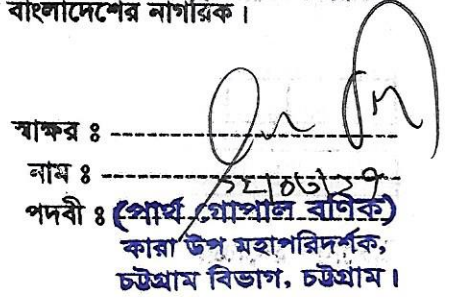 বাংলাদেশের নাগরিক।
স্বাক্ষর ঃ
নাম ঃ
পদবী ঃ (পার্থ গোপাল বণিক)
কারা উপ মহাপরিদর্শক,
চট্টগ্রাম বিভাগ, চট্টগ্রাম।